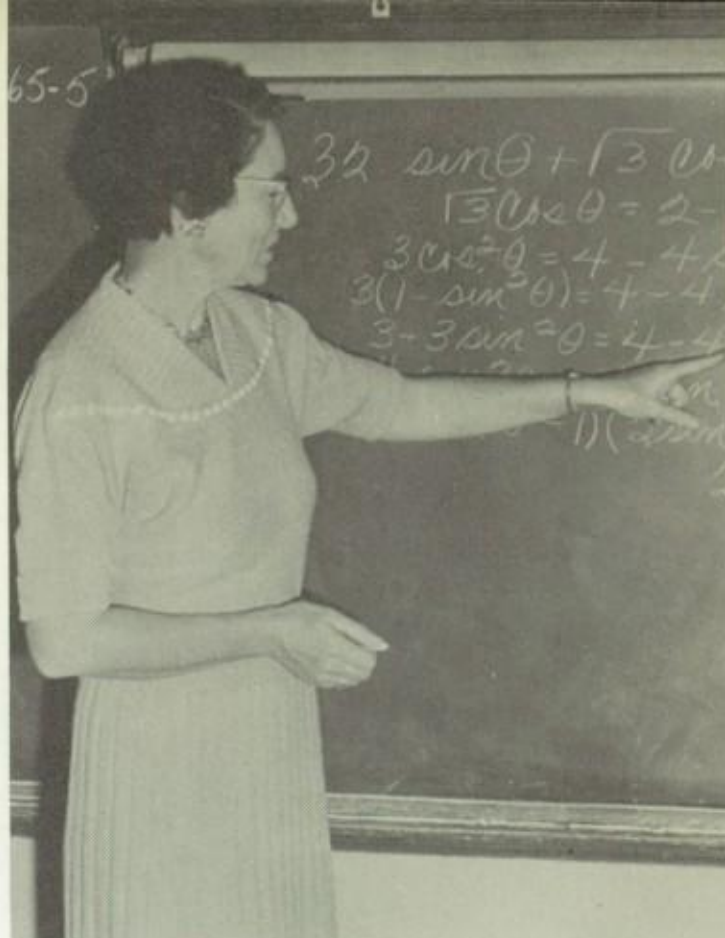 65-5
32 sinθ + √3 co
√3 cos θ = 2 -
3 cos²θ = 4 - 4
3(1 - sin²θ) = 4 - 4
3 - 3 sin²θ = 4 - 4
1)(2 sin